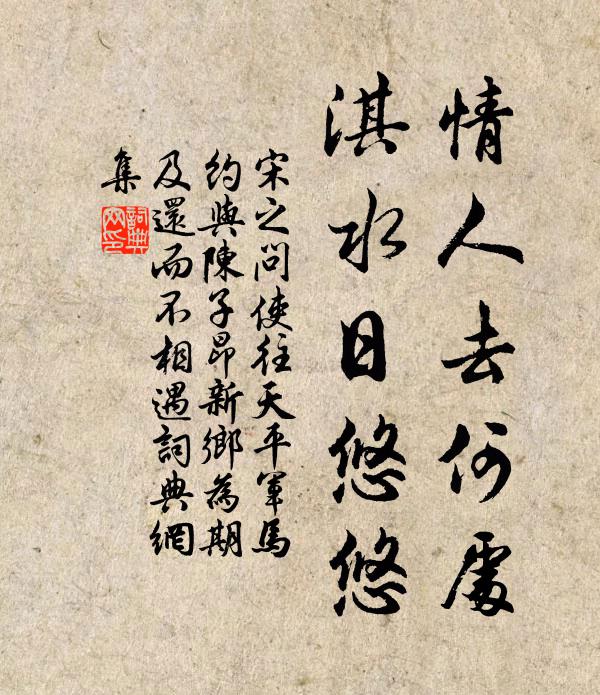 情人去何處
淇水日悠悠
宋之问使往天平軍馬
約與陳子昂新鄉為期
及還而不相遇詞典網
集
詞典
网印